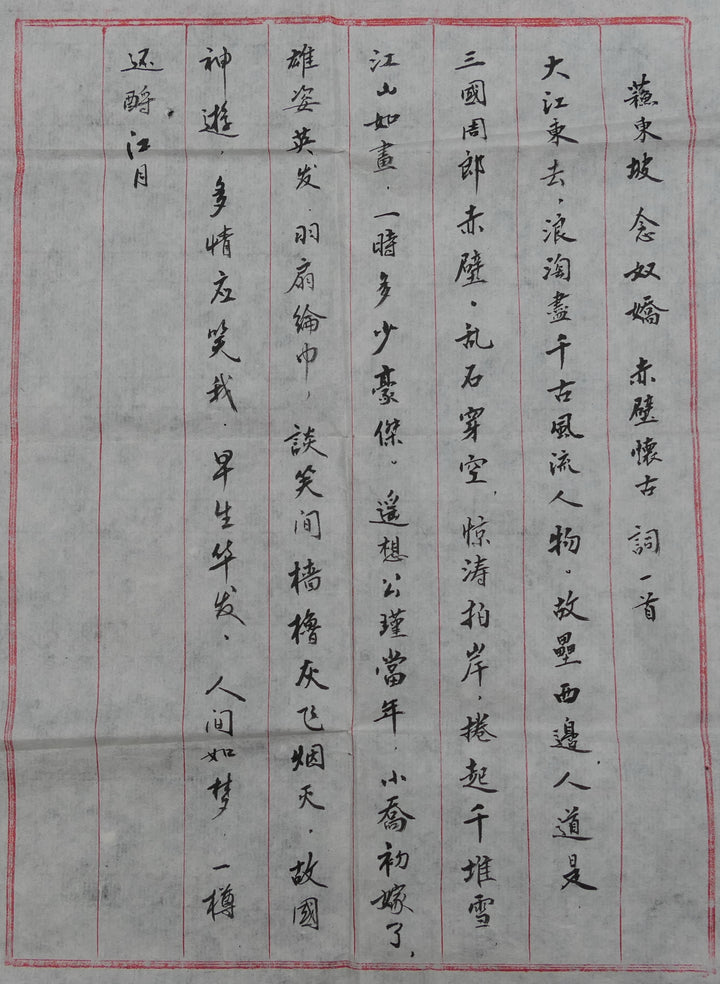 蘓東坡 念奴嬌 赤壁懷古 詞一首
大江東去，浪淘盡千古風流人物。故壘西邊人道是
三國周郎赤壁。乱石穿空，惊涛拍岸，捲起千堆雪
江山如畫，一時多少豪傑。遥想公瑾當年，小喬初嫁了，
雄姿英发，羽扇綸巾，談笑间樯櫓灰飞烟灭，故國
神遊，多情应笑我，早生华发，人间如梦，一樽
还酹江月